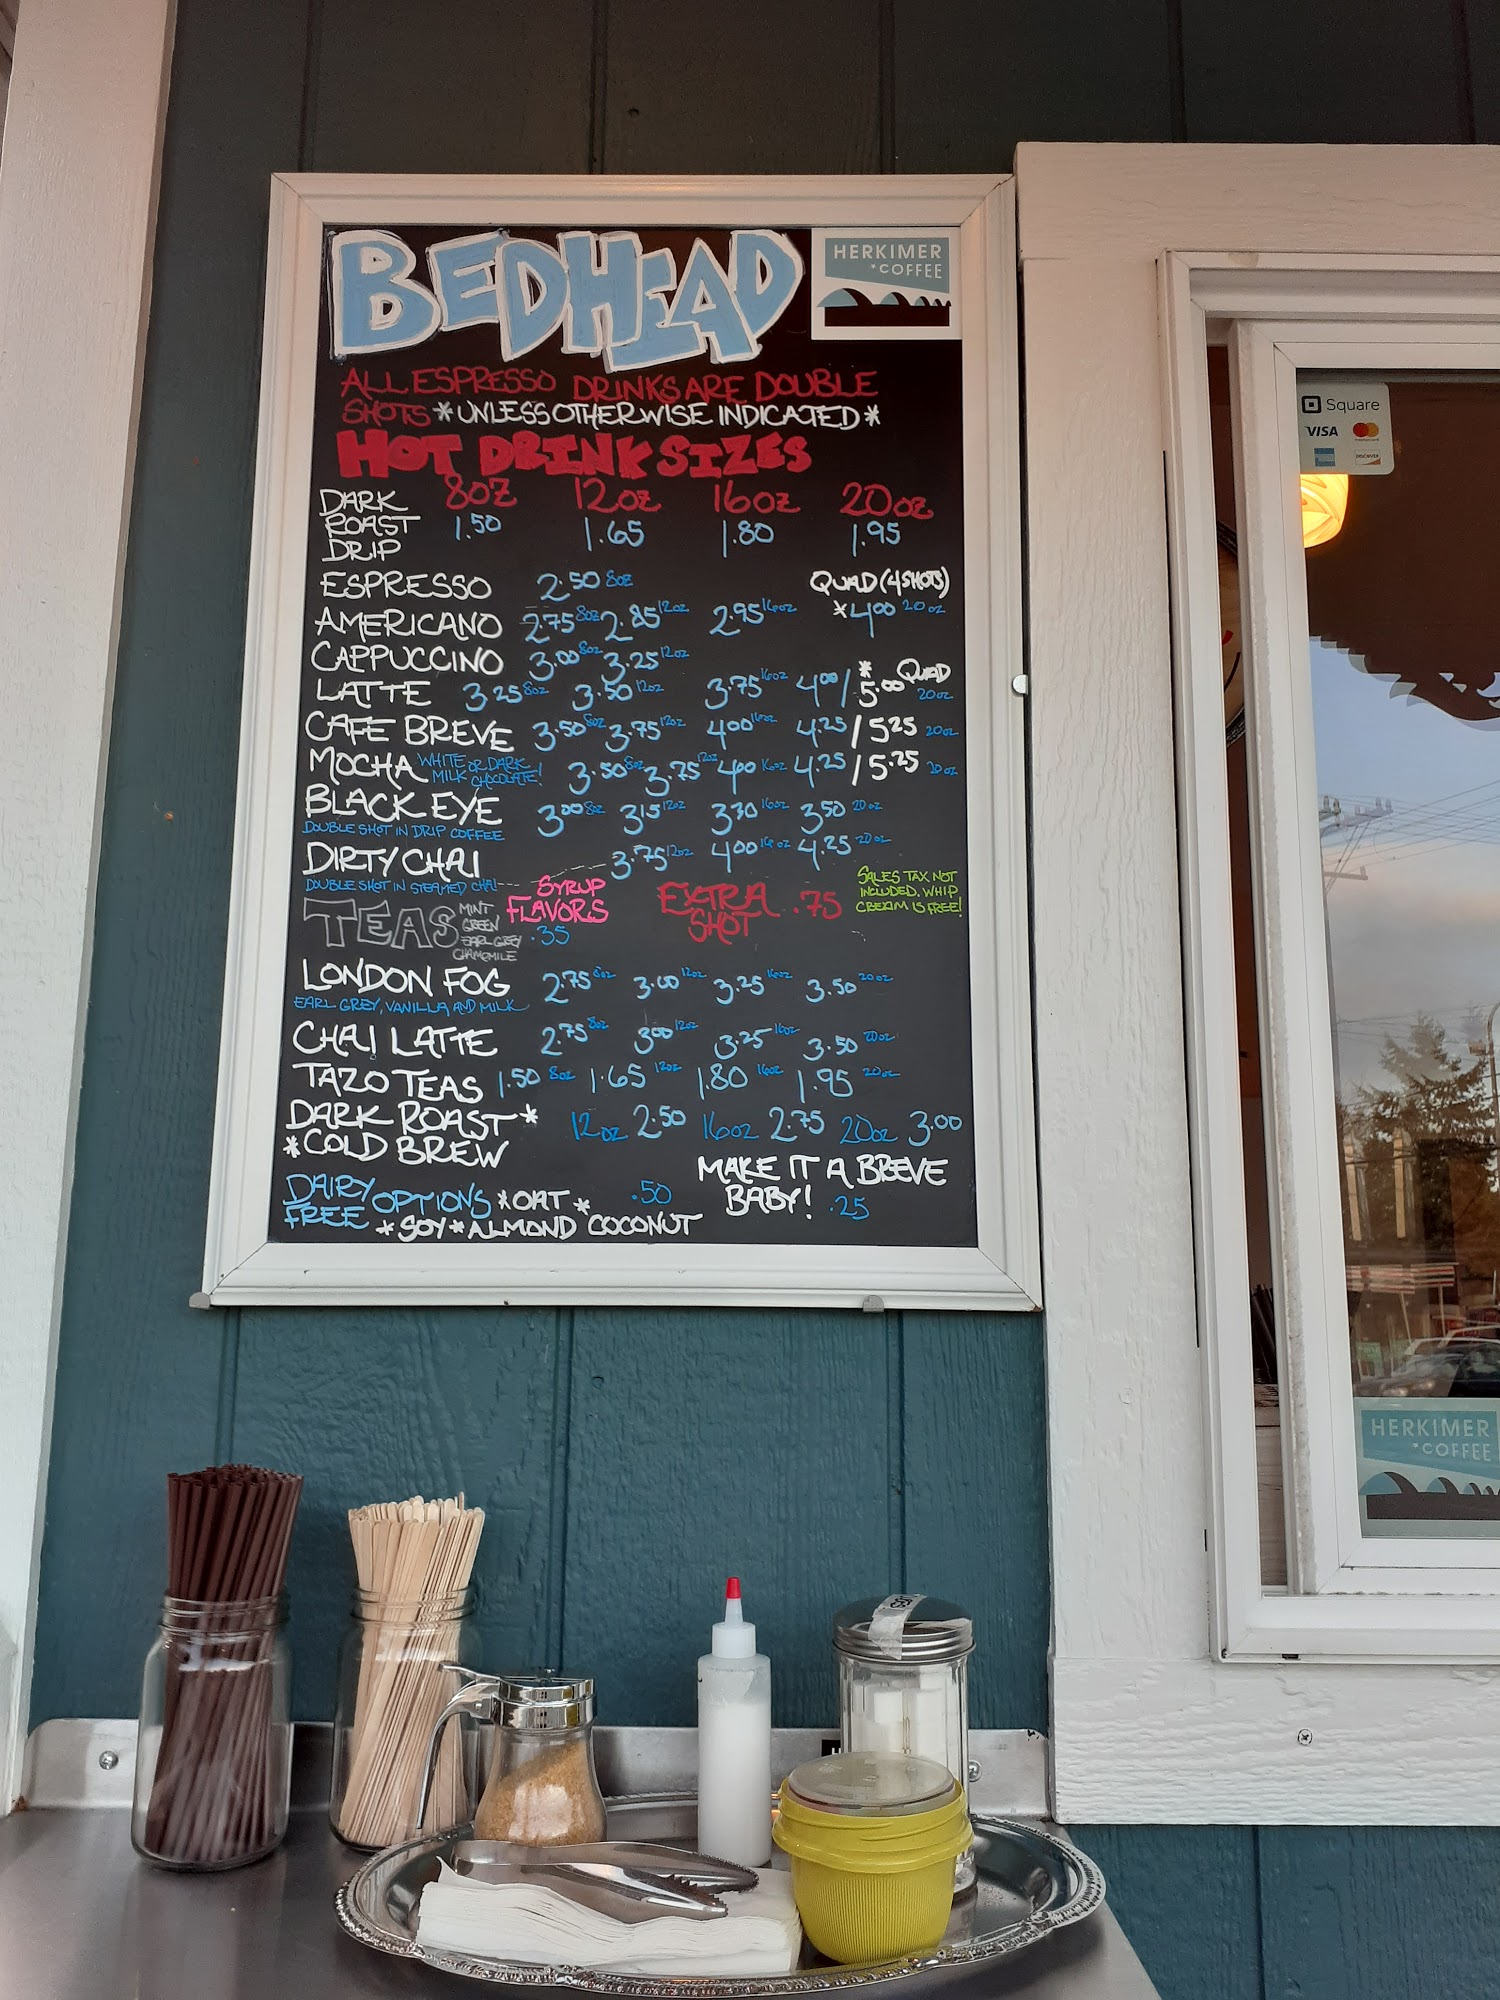 BEDHEAD
HERKIMER
*COFFEE
ALL ESPRESSO DRINKS ARE DOUBLE
SHOTS *UNLESS OTHERWISE INDICATED*
HOT DRINK SIZES
8OZ 12OZ 16OZ 20OZ
DARK ROAST DRIP 1.50 1.65 1.80 1.95
ESPRESSO 2.50 8OZ QUAD (4 SHOTS)
AMERICANO 2.75 8OZ 2.85 12OZ 2.95 16OZ *4.00 20OZ
CAPPUCCINO 3.00 8OZ 3.25 12OZ
* QUAD
LATTE 3.25 8OZ 3.50 12OZ 3.75 16OZ 4.00/5.00 20OZ
CAFE BREVE 3.50 8OZ 3.75 12OZ 4.00 16OZ 4.25/5.25 20OZ
MOCHA WHITE OR DARK MILK CHOCOLATE! 3.50 8OZ 3.75 12OZ 4.00 16OZ 4.25/5.25 20OZ
BLACK EYE 3.00 8OZ 3.15 12OZ 3.30 16OZ 3.50 20OZ
DOUBLE SHOT IN DRIP COFFEE
DIRTY CHAI 3.75 12OZ 4.00 16OZ 4.25 20OZ
DOUBLE SHOT IN STEAMED CHAI
TEAS
MINT
GREEN
EARL GREY
CHAMOMILE
SYRUP
FLAVORS
.35
EXTRA
SHOT ..75
SALES TAX NOT
INCLUDED. WHIP
CREAM IS FREE!
LONDON FOG 2.75 8OZ 3.00 12OZ 3.25 16OZ 3.50 20OZ
EARL GREY, VANILLA AND MILK
CHAI LATTE 2.75 8OZ 3.00 12OZ 3.25 16OZ 3.50 20OZ
TAZO TEAS 1.50 8OZ 1.65 12OZ 1.80 16OZ 1.95 20OZ
DARK ROAST* 12OZ 2.50 16OZ 2.75 20OZ 3.00
*COLD BREW
DAIRY FREE OPTIONS *OAT* .50
*SOY*ALMOND COCONUT
MAKE IT A BREVE
BABY! .25
Square
VISA
DISCOVER
HERKIMER
*COFFEE